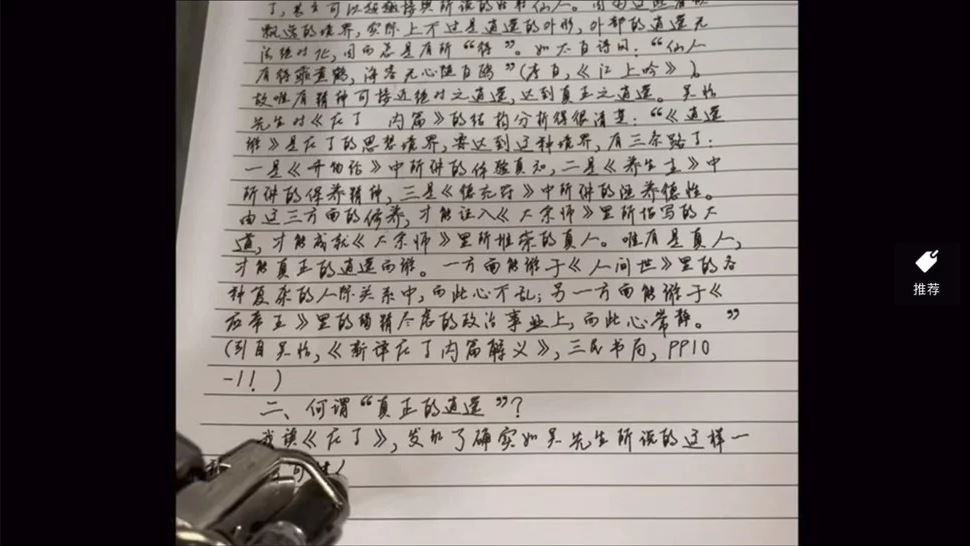 了，甚至可以超越接舆所说的姑射仙人。因由这些有
飘逸的境界，实际上不过是逍遥的外形，外部的逍遥无
法绝对化，因而总是有所“待”。如太白诗曰：“仙人
有待乘黄鹤，海客无心随白鸥”（李白，《江上吟》）。
故唯有精神可接近绝对之逍遥，达到真正之逍遥。吴怡
先生对《庄子 内篇》的结构分析得很清楚：“《逍遥
游》是庄子的思想境界，要达到这种境界，有三条路子：
一是《齐物论》中所讲的体验真知，二是《养生主》中
所讲的保养精神，三是《德充符》中所讲的涵养德性。
由这三方面的修养，才能证入《大宗师》里所描写的大
道，才能成就《大宗师》里所推崇的真人。唯有是真人，
才能真正的逍遥而游。一方面能游于《人间世》里的各
种复杂的人际关系中，而此心不乱；另一方面能游于《
应帝王》里的竭精尽虑的政治事业上，而此心常静。”
（引自吴怡，《新译庄子内篇解义》，三民书局，PP10
-11）
二、何谓“真正的逍遥”？
我读《庄子》，发现了确实如吴先生所说的这样一
推荐